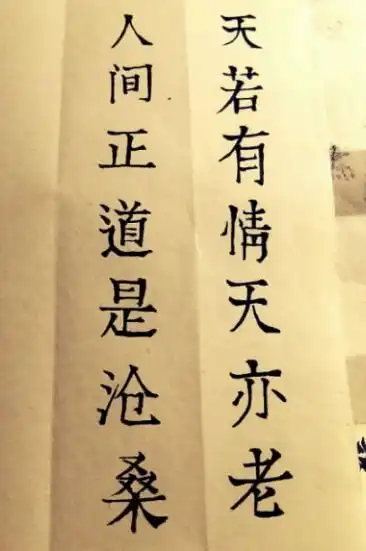 天若有情天亦老
人间正道是沧桑